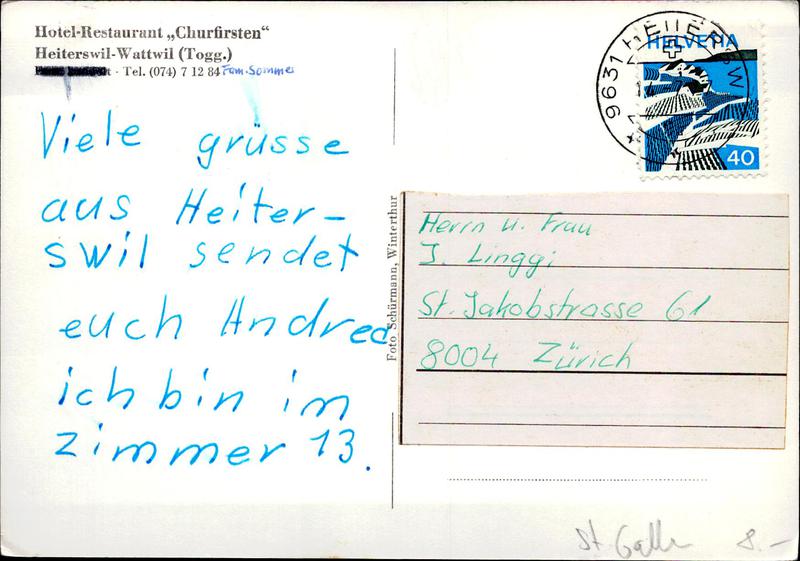 Hotel-Restaurant „Churfirsten“
Heiterswil-Wattwil (Togg.)
· Tel. (074) 7 12 84 Fam. Sommer
Viele grüsse
aus Heiter-
swil sendet
euch Andrea
ich bin im
zimmer 13.
Foto Schürmann, Winterthur
HELVETIA
40
9631 HEITERSWIL
Herrn u. Frau
J. Linggi
St. Jakobstrasse 61
8004 Zürich
St. Gallen 8.–